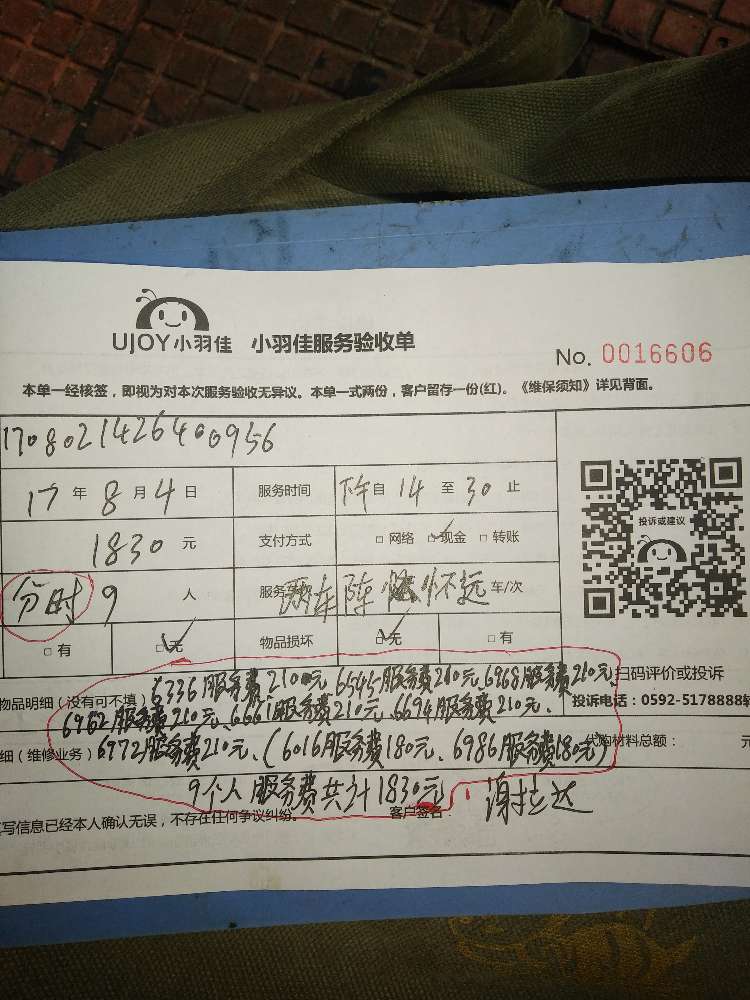 UJOY小羽佳 小羽佳服务验收单
No. 0016606
本单一经核签，即视为对本次服务验收无异议。本单一式两份，客户留存一份(红)。《维保须知》详见背面。
1708021426400956
17年8月4日 服务时间 下午自14至30止
投诉或建议
1830元 支付方式 □网络 ☑现金 □转账
分时 9人 服务 两车陈 怀远 车/次
□有 ☑无 物品损坏 ☑无 □有
扫码评价或投诉
物品明细（没有可不填） 6336服务费210元 6545服务费210元 6968服务费210元
投诉电话：0592-5178888转
6962服务费210元、6661服务费210元、6694服务费210元、
细（维修业务） 6972服务费210元、（6016服务费180元、6986服务费180元）
代购材料总额： 元
9个人服务费共计1830元
写信息已经本人确认无误，不存在任何争议纠纷。 客户签名： 谢拉达